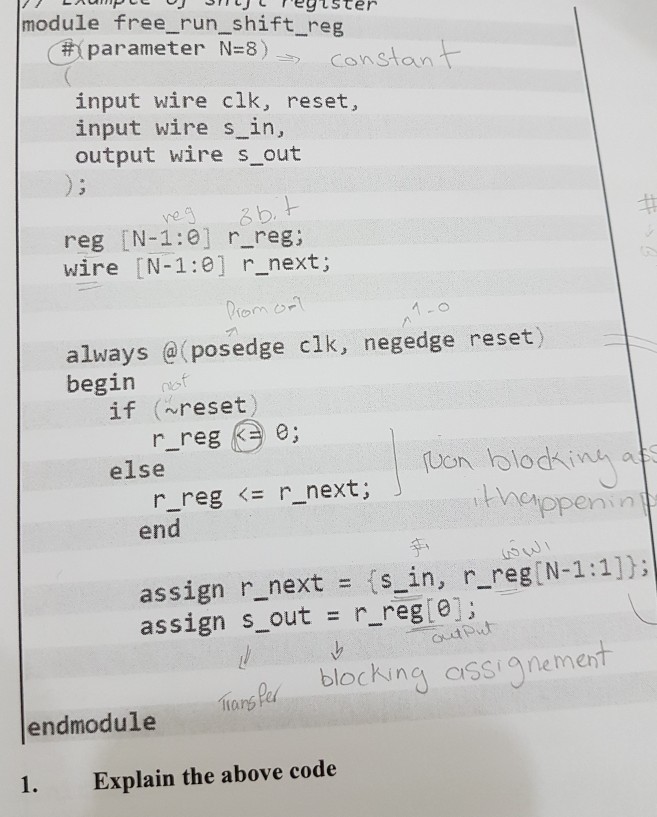 // Example of shift register
module free_run_shift_reg
#(parameter N=8) ⇒ constant
(
input wire clk, reset,
input wire s_in,
output wire s_out
);
reg 8bit
reg [N-1:0] r_reg;
wire [N-1:0] r_next;
1-0
always @(posedge clk, negedge reset)
begin
not
if (~reset)
r_reg <= 0;
else
Non blocking ass
r_reg <= r_next;
it happening
end
assign r_next = {s_in, r_reg[N-1:1]};
assign s_out = r_reg[0];
output
blocking assignement
Transfer
endmodule
1. Explain the above code